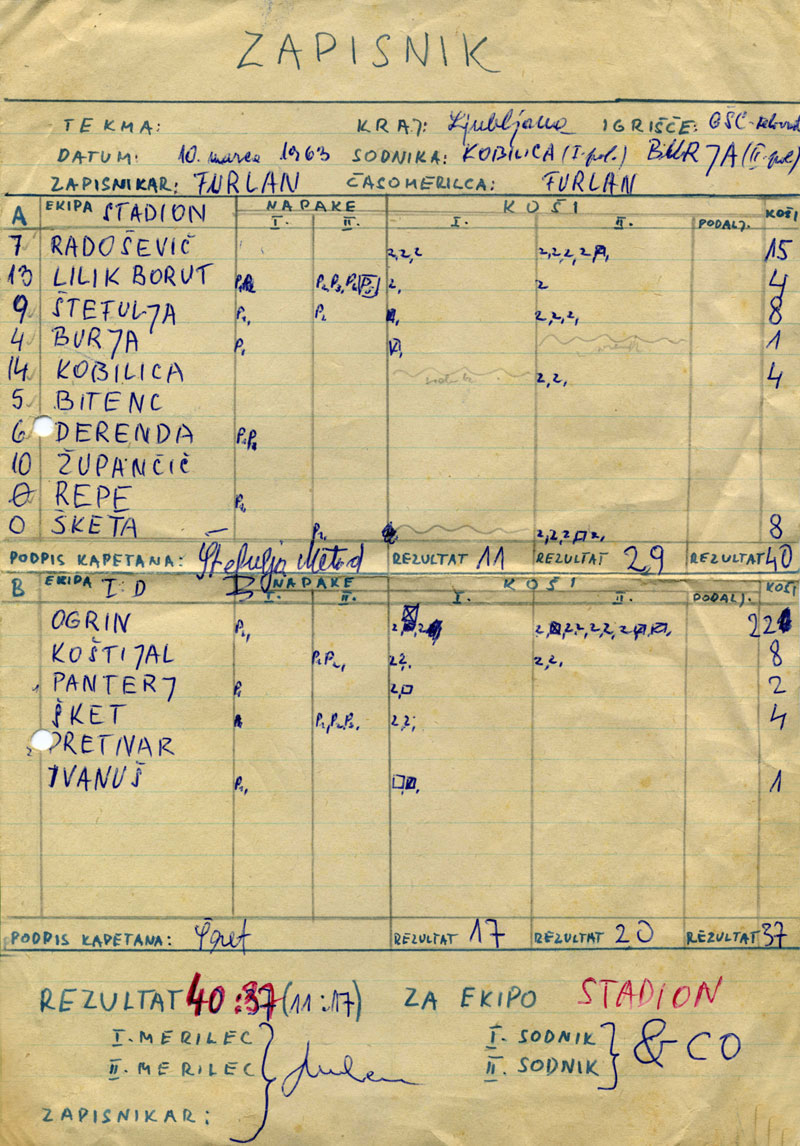 ZAPISNIK
TEKMA: KRAJ: Ljubljana IGRIŠČE: GŠC
DATUM: 10. marca 1963 SODNIKA: KOBILICA (I. pol.) BURJA (II. pol)
ZAPISNIKAR: FURLAN ČASOMERILCA: FURLAN
A EKIPA STADION NAPAKE KOŠI KOŠI
I. II. I. II. PODALJ.
7 RADOŠEVIČ 2,2,2 2,2,2,2 15
13 LILIK BORUT 2, 2 4
9 ŠTEFULJA P1, P2 2,2,2, 8
4 BURJA P1, 1
14 KOBILICA 2,2, 4
5 BITENC
6 DERENDA
10 ŽUPANČIČ
0 REPE P1,
0 ŠKETA P2, 2,2,2 2, 8
PODPIS KAPETANA: Štefulja Metod REZULTAT 11 REZULTAT 29 REZULTAT 40
B EKIPA I D B NAPAKE KOŠI KOŠI
I. II. I. II. PODALJ.
OGRIN P1, 22
KOŠTIJAL P1P2, 2 2, 2,2, 8
PANTERJ P1 2, 2
ŠKET P1,P2P3, 2 2, 4
PRETNAR
IVANUŠ P1, 1
PODPIS KAPETANA: Šket REZULTAT 17 REZULTAT 20 REZULTAT 37
REZULTAT 40:37 (11:17) ZA EKIPO STADION
I. MERILEC I. SODNIK
II. MERILEC II. SODNIK & CO
ZAPISNIKAR: